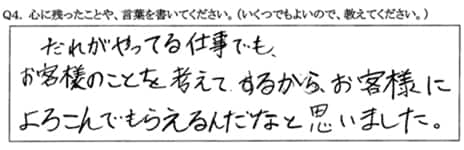 Q4. 心に残ったことや、言葉を書いてください。（いくつでもよいので、教えてください。）
だれがやってる仕事でも、
お客様のことを考えてするから、お客様に
よろこんでもらえるんだなと思いました。